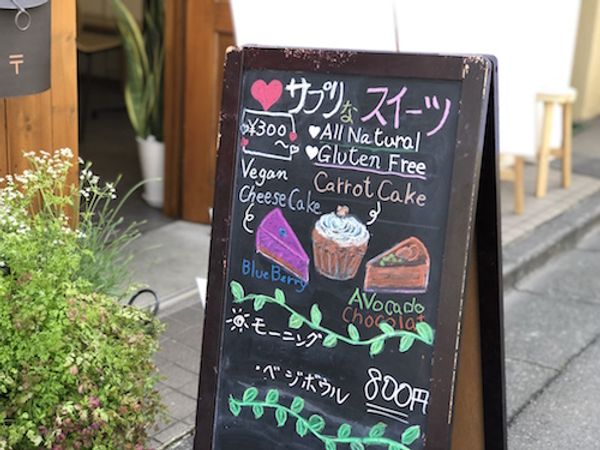 〒
♥サプリな スイーツ
¥300～
♥All Natural
♥Gluten Free
Vegan
CheeseCake
Carrot Cake
BlueBerry
AVocado
Chocolat
モーニング
・ベジボウル 800円